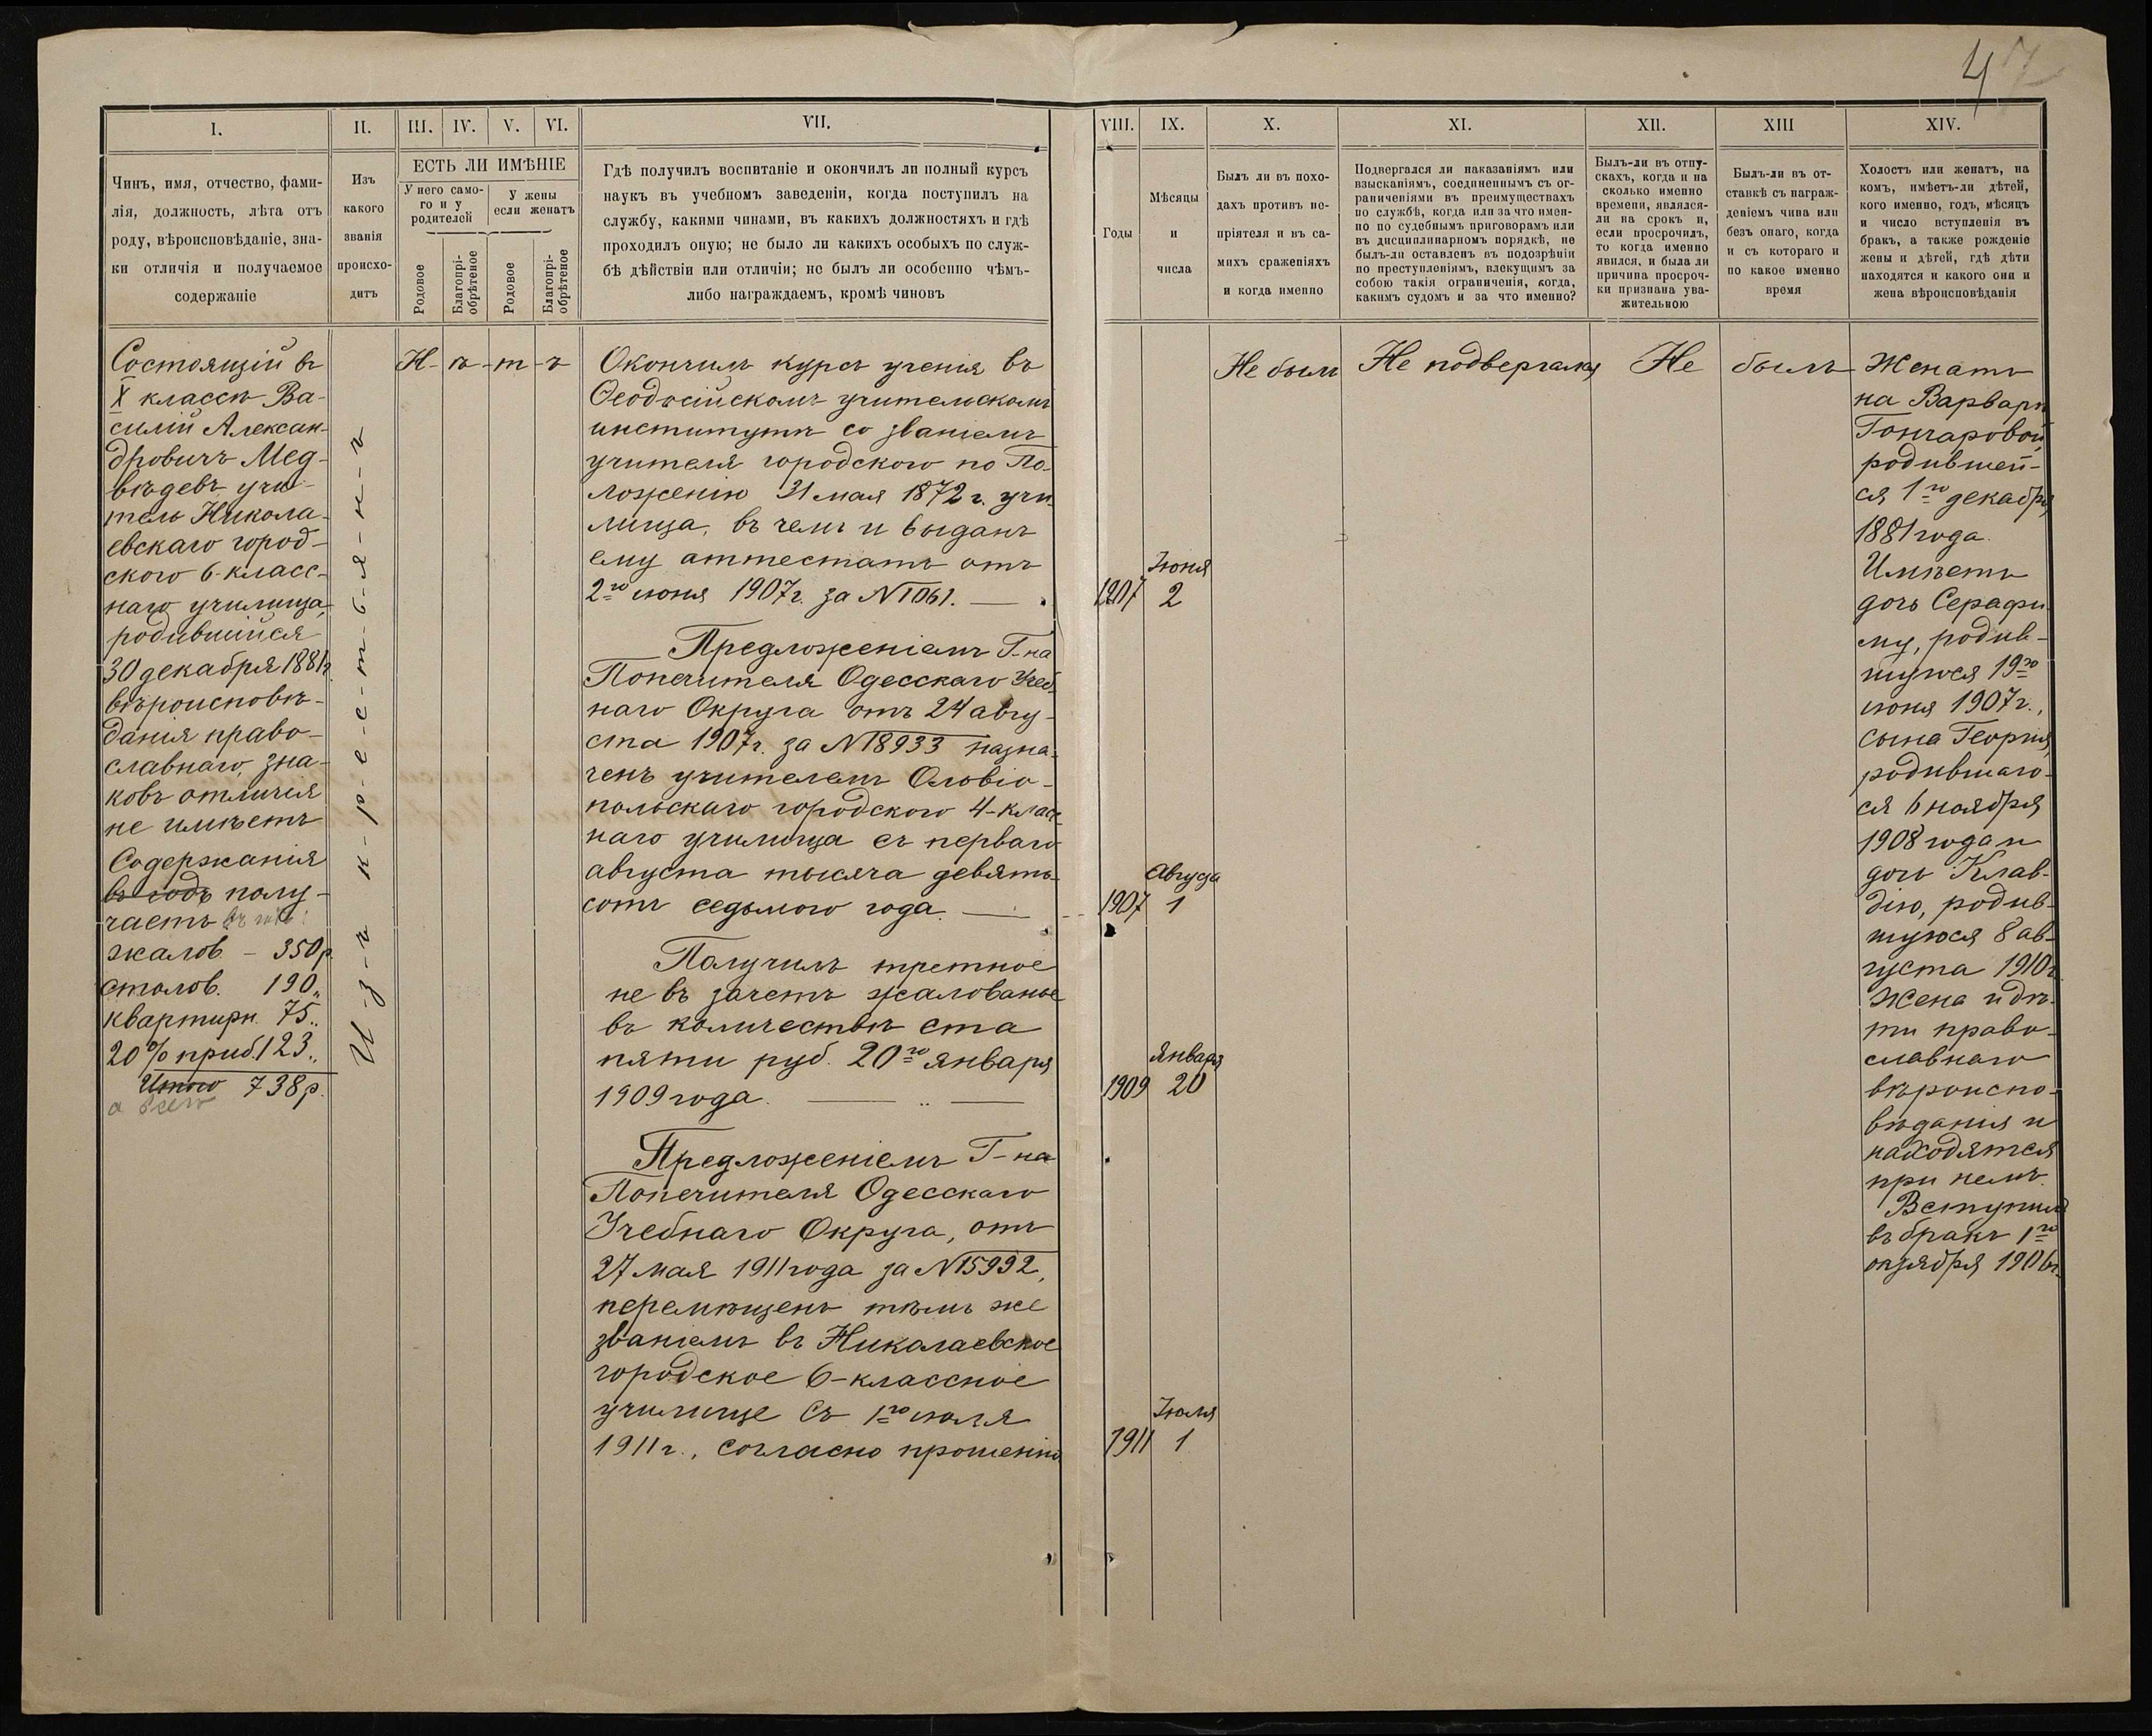 47
I.
II.
III.
IV.
V.
VI.
VII.
VIII.
IX.
X.
XI.
XII.
XIII
XIV.
Чинъ, имя, отчество, фами-
лія, должность, лѣта отъ
роду, вѣроисповѣданіе, зна-
ки отличія и получаемое
содержаніе
Изъ
какого
званія
происхо-
дитъ
ЕСТЬ ЛИ ИМѢНІЕ
У него само-
го и у
родителей
У жены
если женатъ
Родовое
Благопрі-
обрѣтеное
Родовое
Благопрі-
обрѣтеное
Гдѣ получилъ воспитаніе и окончилъ ли полный курсъ
наукъ въ учебномъ заведеніи, когда поступилъ на
службу, какими чинами, въ какихъ должностяхъ и гдѣ
проходилъ оную; не было ли какихъ особыхъ по служ-
бѣ дѣйствіи или отличіи; не былъ ли особенно чѣмъ-
либо награждаемъ, кромѣ чиновъ
Годы
Мѣсяцы
и
числа
Былъ ли въ похо-
дахъ противъ не-
пріятеля и въ са-
михъ сраженіяхъ
и когда именно
Подвергался ли наказаніямъ или
взысканіямъ, соединеннымъ съ ог-
раниченіями въ преимуществахъ
по службѣ, когда или за что имен-
но по судебнымъ приговорамъ или
въ дисциплинарномъ порядкѣ, не
былъ-ли оставленъ въ подозрѣніи
по преступленіямъ, влекущимъ за
собою такія ограниченія, когда,
какимъ судомъ и за что именно?
Былъ-ли въ отпу-
скахъ, когда и на
сколько именно
времени, являлся-
ли на срокъ и,
если просрочилъ,
то когда именно
явился, и была ли
причина просроч-
ки признана ува-
жительною
Былъ-ли въ от-
ставкѣ съ награж-
деніемъ чина или
безъ онаго, когда
и съ котораго и
по какое именно
время
Холостъ или женатъ, на
комъ, имѣетъ-ли дѣтей,
кого именно, годъ, мѣсяцъ
и число вступленія въ
бракъ, а также рожденіе
жены и дѣтей, гдѣ дѣти
находятся и какого они и
жена вѣроисповѣданія
Состоящій въ
X классѣ Ва-
силій Алексан-
дровичъ Мед-
вѣдевъ учи-
тель Никола-
евскаго город-
ского 6-класс-
наго училища,
родившійся
30 декабря 1881г.
вѣроисповѣ-
данія право-
славнаго, зна-
ковъ отличія
не имѣетъ
Содержанія
въ годъ полу-
чаетъ въ годъ:
жалов. – 350р.
столов. 190„
квартирн. 75„
20% приб. 123„
Итого 738р.
а всего
И-з-ъ к-р-е-с-т-ь-я-н-ъ
Н-ѣ-т-ъ
Окончилъ курсъ ученія въ
Ѳеодосійскомъ учительскомъ
институтѣ со званіемъ
учителя городского по По-
ложенію 31 мая 1872 г. учи-
лища, въ чемъ и выданъ
ему аттестатъ отъ
2го іюня 1907г. за №1061. —
Предложеніемъ Г-на
Попечителя Одесскаго Учеб-
наго Округа отъ 24 авгу-
ста 1907г. за №18933 назна-
ченъ учителемъ Ольвіо-
польскаго городского 4-класс-
наго училища съ перваго
августа тысяча девять-
сотъ седьмого года. —
Получилъ третное
не въ зачетъ жалованье
въ количествѣ ста
пяти руб. 20го января
1909 года. — „ —
Предложеніемъ Г-на
Попечителя Одесскаго
Учебнаго Округа, отъ
27 мая 1911 года за №15992,
перемѣщенъ тѣмъ же
званіемъ въ Николаевское
городское 6-классное
училище съ 1го іюля
1911 г., согласно прошенію
Іюня
1907 2
Августа
1907 1
Января
1909 20
Іюля
1911 1
Не былъ
Не подвергался
Не былъ
Женатъ
на Варварѣ
Гончаровой,
родившей-
ся 1го декабря
1881 года.
Имѣетъ
дочь Серафи-
му, родив-
шуюся 19го
іюня 1907г.,
сына Георгія,
родившаго-
ся 6 ноября
1908 года и
дочь Клав-
дію, родив-
шуюся 8 ав-
густа 1910г.
Жена и дѣ-
ти право-
славнаго
вѣроиспо-
вѣданія и
находятся
при немъ.
Вступилъ
въ бракъ 1го
октября 1906г.